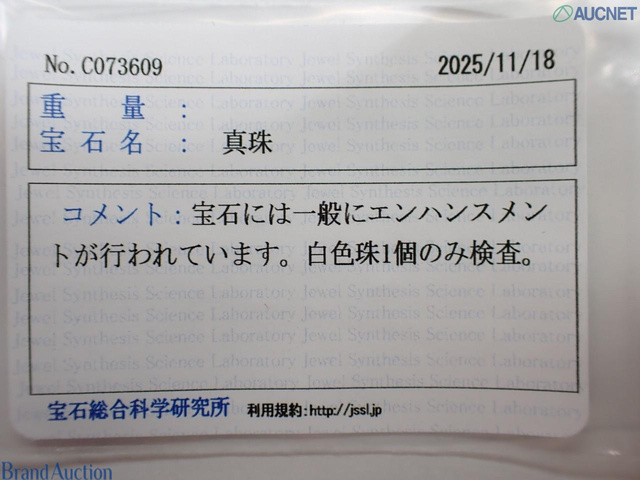 AUCNET
No. C073609 2025/11/18
重 量 :
宝 石 名 : 真珠
コメント:宝石には一般にエンハンスメン
トが行われています。白色珠1個のみ検査。
宝石総合科学研究所 利用規約:http://jssl.jp
Jewel Synthesis Science Laboratory
BrandAuction